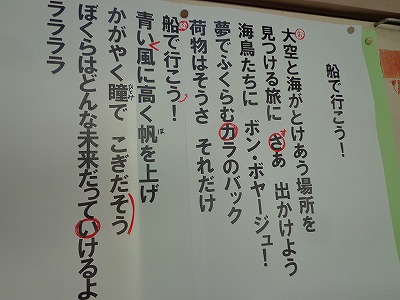 船で行こう！
大空と海がとけあう場所を
見つける旅に さあ 出かけよう
海鳥たちに ボン・ボヤージュ！
夢でふくらむカラのバック
荷物はそうさ それだけ
船で行こう！
青い風に高く帆を上げ
かがやく瞳で こぎだそう
ぼくらはどんな未来だっていけるよ
ララララ